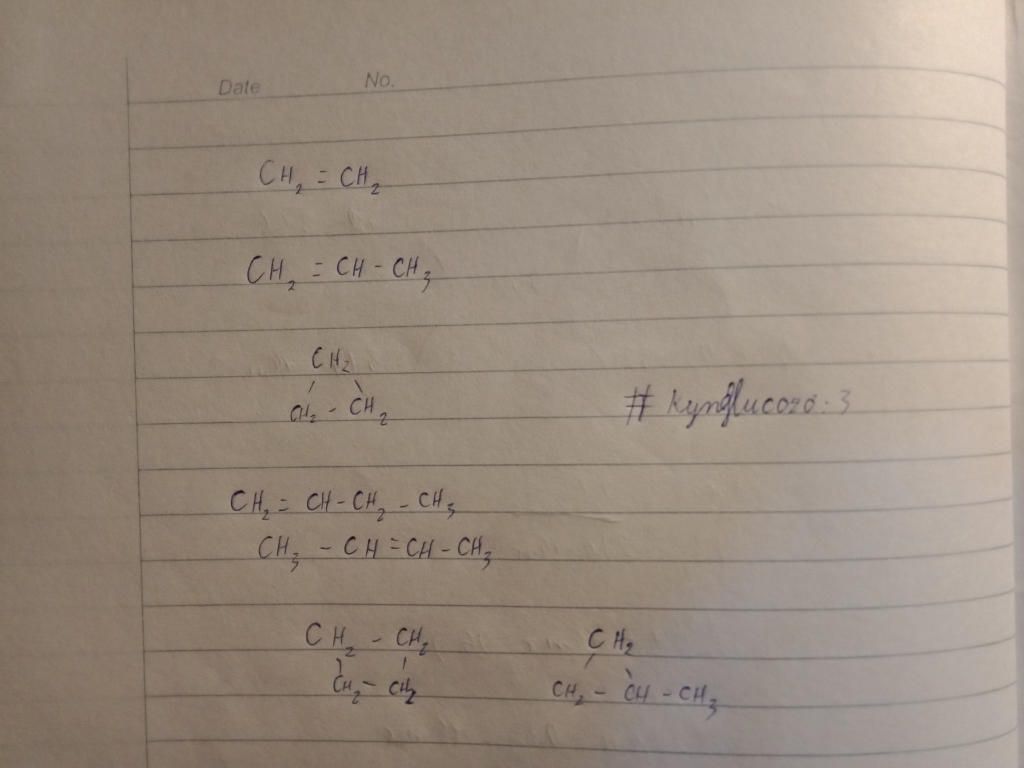 Date No.
CH₂ = CH₂
CH₂ = CH - CH₃
CH₂
/ \
CH₂ - CH₂
# kynglucozo:3
CH₂ = CH - CH₂ - CH₃
CH₃ - CH = CH - CH₃
CH₂ - CH₂ CH₂
CH₂ - CH₂ CH₂ - CH - CH₃